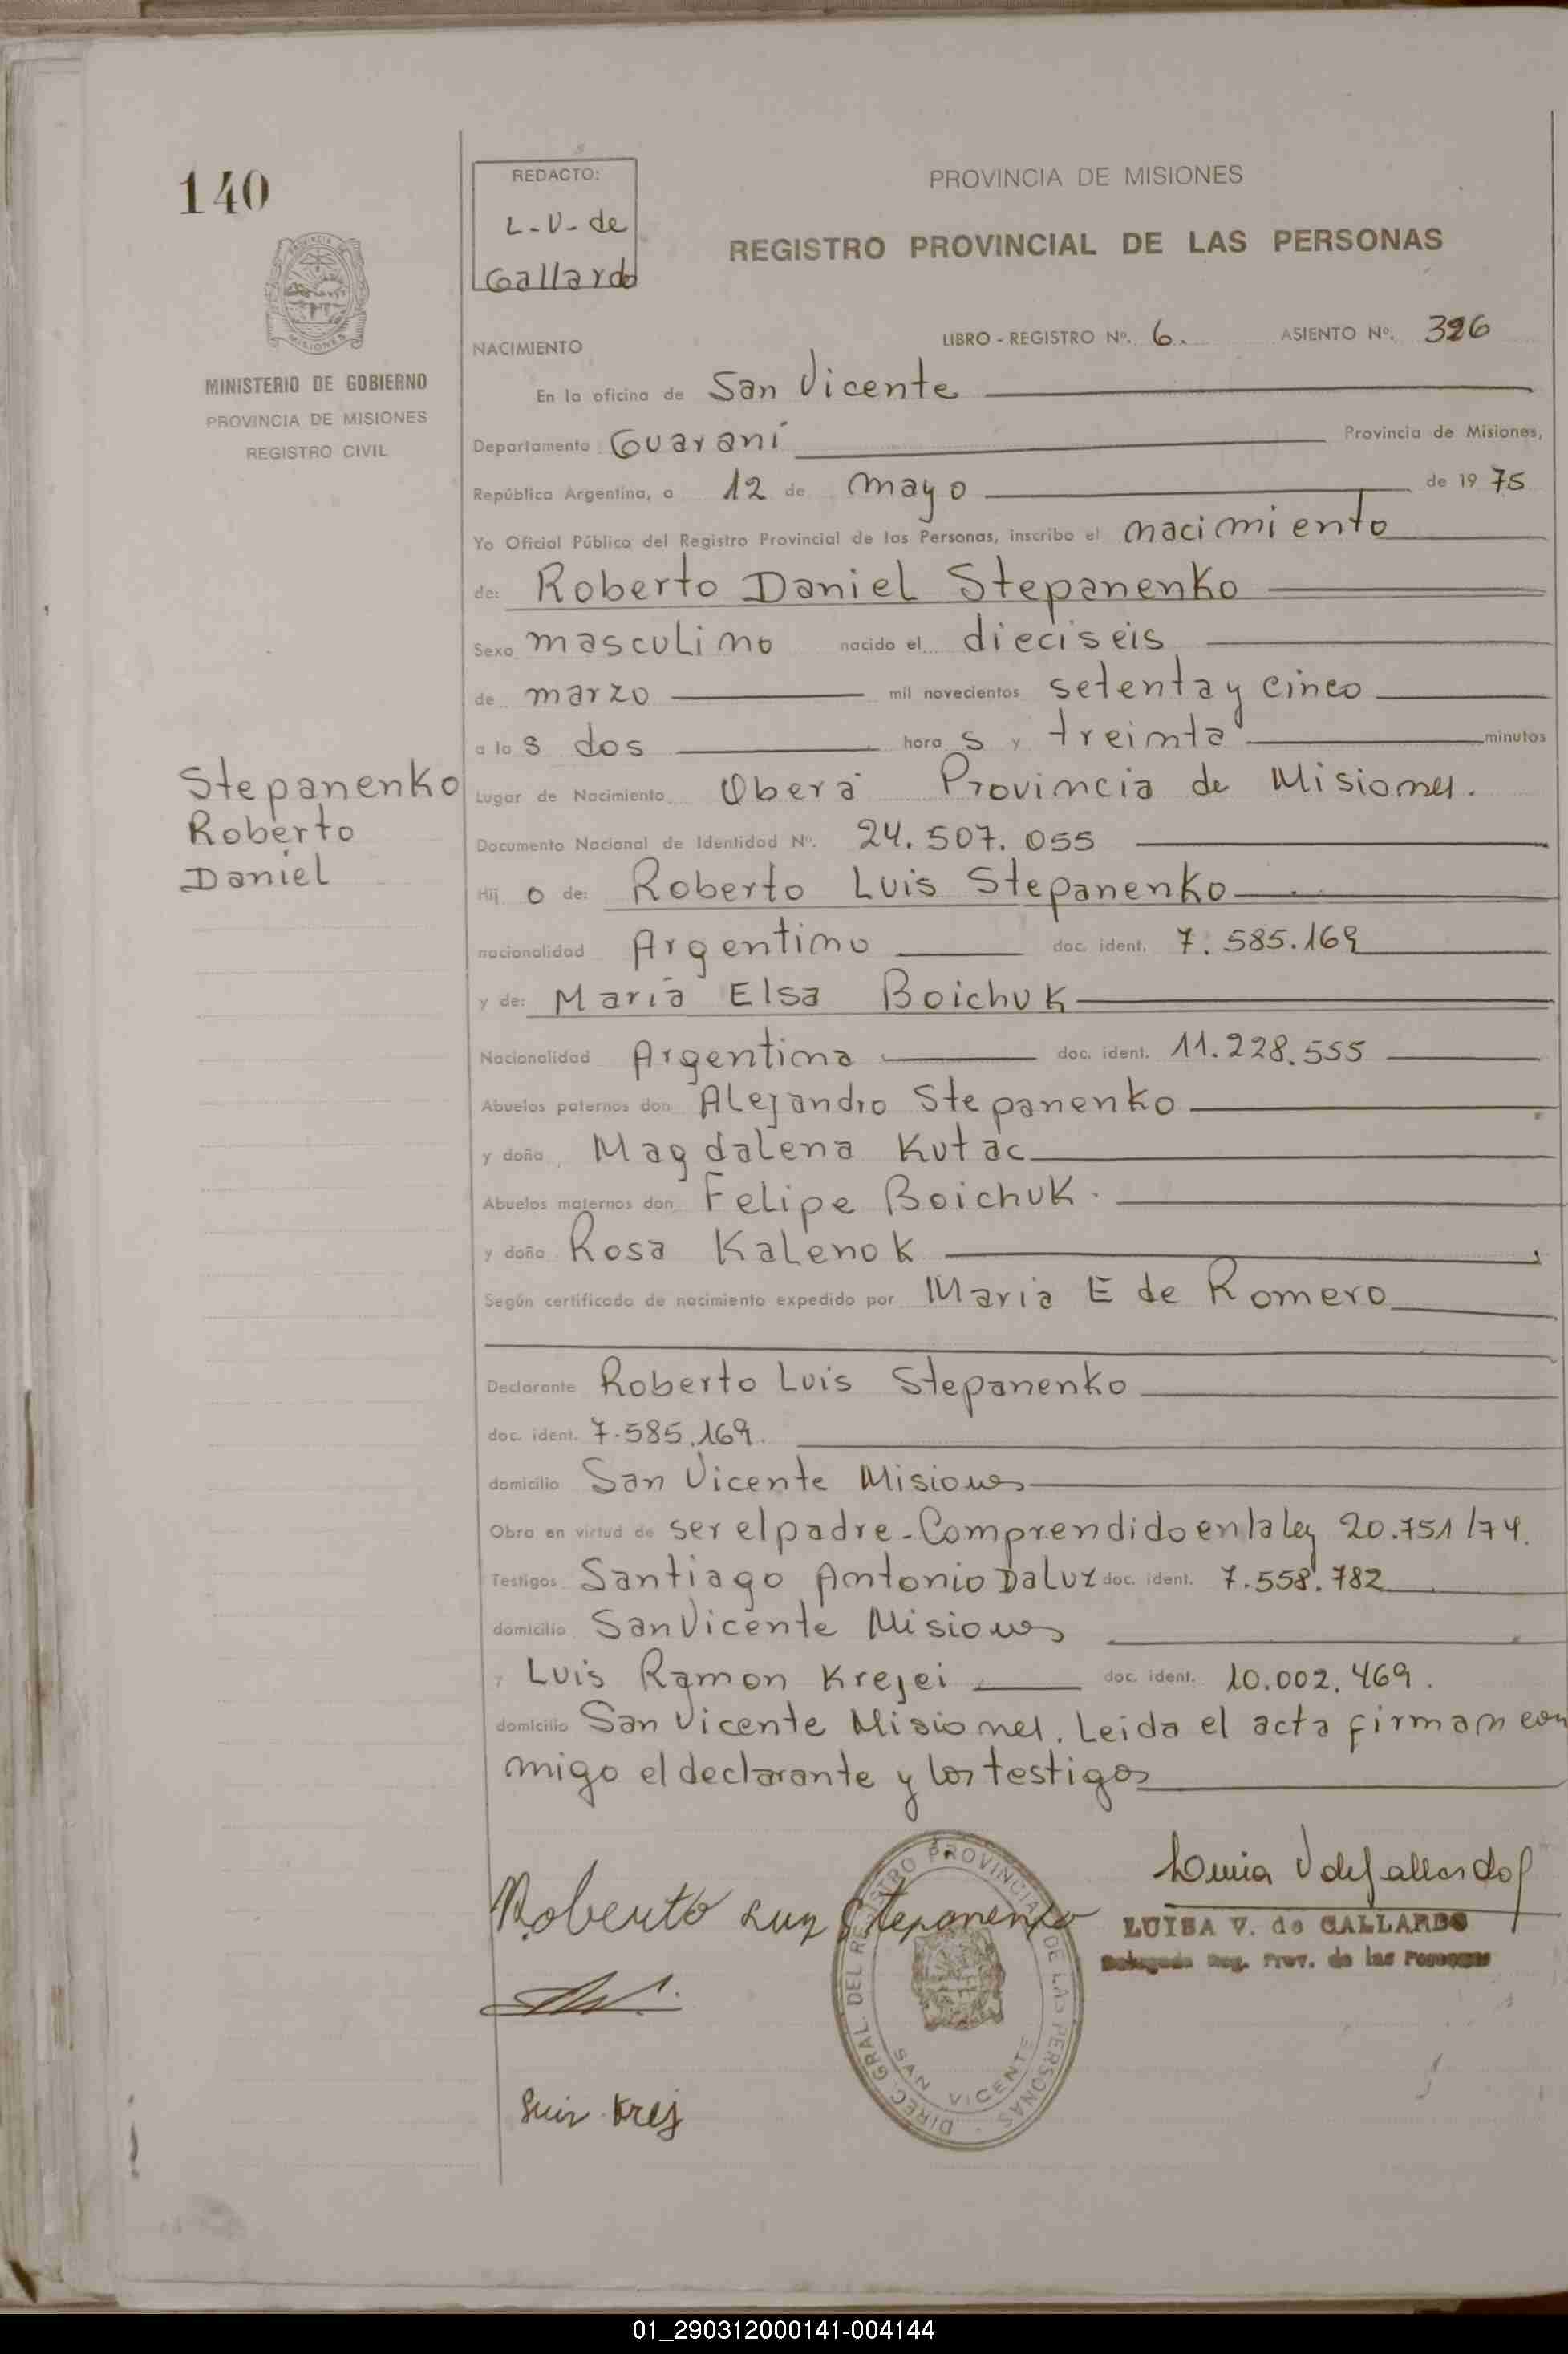 140
REDACTO:
L-V-de
Gallardo
PROVINCIA DE MISIONES
REGISTRO PROVINCIAL DE LAS PERSONAS
MISIONES
MINISTERIO DE GOBIERNO
PROVINCIA DE MISIONES
REGISTRO CIVIL
NACIMIENTO
LIBRO - REGISTRO Nº. 6. ASIENTO Nº. 326
En la oficina de San Vicente
Departamento Guaraní Provincia de Misiones,
República Argentina, a 12 de mayo de 1975
Yo Oficial Público del Registro Provincial de las Personas, inscribo el nacimiento
de: Roberto Daniel Stepanenko
Sexo masculino nacido el dieciseis
de marzo mil novecientos setenta y cinco
a las dos horas y treinta minutos
Stepanenko
Roberto
Daniel
Lugar de Nacimiento Oberá Provincia de Misiones.
Documento Nacional de Identidad Nº. 24.507.055
Hijo de: Roberto Luis Stepanenko
nacionalidad Argentino doc. ident. 7.585.169
y de: María Elsa Boichuk
Nacionalidad Argentina doc. ident. 11.228.555
Abuelos paternos don Alejandro Stepanenko
y doña Magdalena Kutac
Abuelos maternos don Felipe Boichuk.
y doña Rosa Kalenok
Según certificado de nacimiento expedido por Maria E de Romero
Declarante Roberto Luis Stepanenko
doc. ident. 7.585.169.
domicilio San Vicente Misiones
Obra en virtud de ser el padre-Comprendido en la ley 20.751/74.
Testigos Santiago Antonio Daluz doc. ident. 7.558.782
domicilio San Vicente Misiones
y Luis Ramon Krejei doc. ident. 10.002.469.
domicilio San Vicente Misiones. Leida el acta firman con
migo el declarante y los testigos
Roberto Luis Stepanenko
LUISA V. de GALLARDO
Delegada Reg. Prov. de las Personas
DIREC. GRAL. DEL REGISTRO PROVINCIAL DE LAS PERSONAS
SAN VICENTE
Luis Krej
01_290312000141-004144